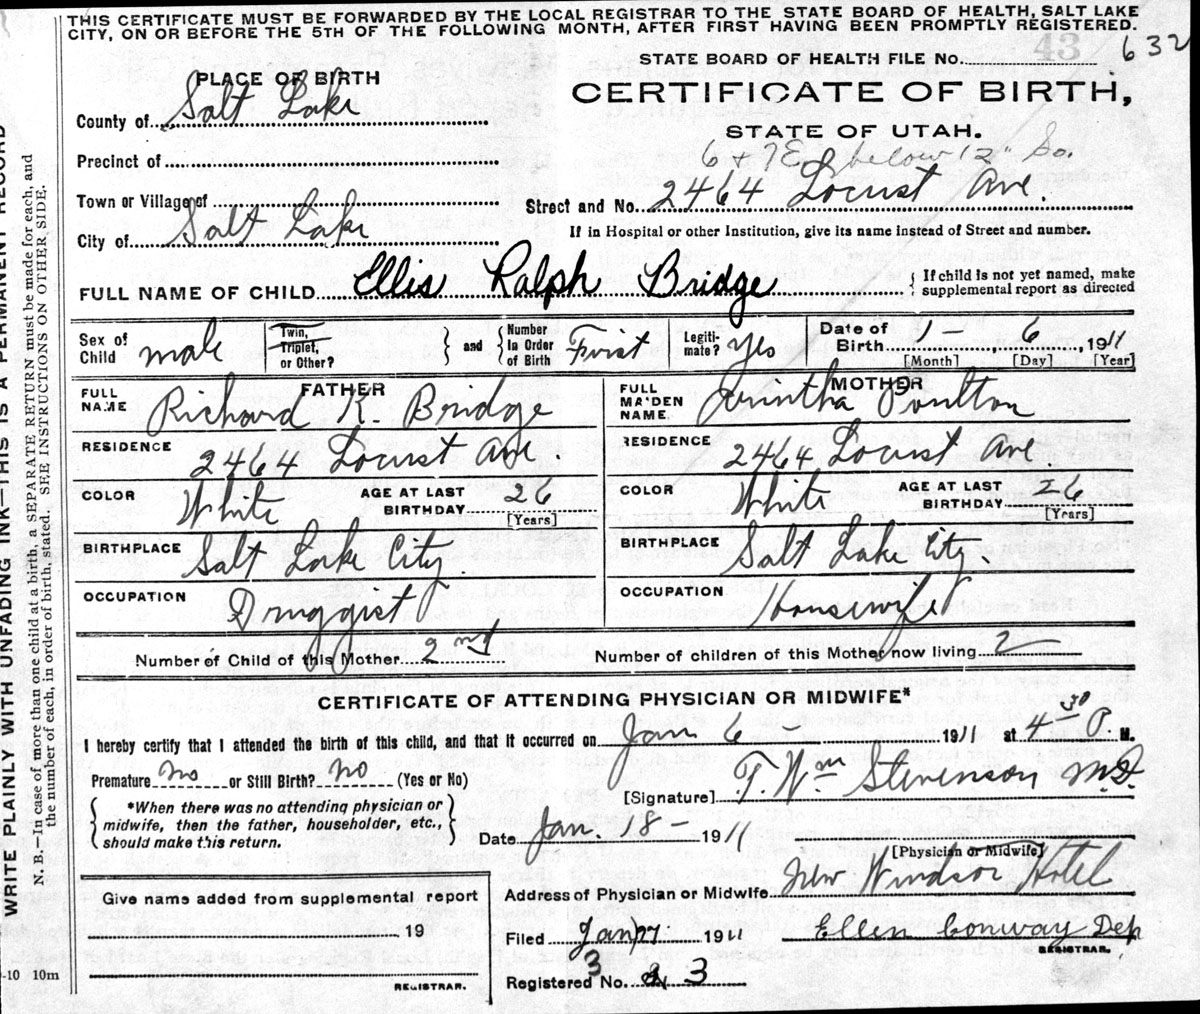 THIS CERTIFICATE MUST BE FORWARDED BY THE LOCAL REGISTRAR TO THE STATE BOARD OF HEALTH, SALT LAKE
CITY, ON OR BEFORE THE 5TH OF THE FOLLOWING MONTH, AFTER FIRST HAVING BEEN PROMPTLY REGISTERED.
43
632
STATE BOARD OF HEALTH FILE NO.
CERTIFICATE OF BIRTH,
STATE OF UTAH.
PLACE OF BIRTH
County of Salt Lake
Precinct of
Town or Village of
City of Salt Lake
6 + 7 E below 12" So.
Street and No. 2464 Locust Ave.
If in Hospital or other Institution, give its name instead of Street and number.
FULL NAME OF CHILD Ellis Ralph Bridge { If child is not yet named, make supplemental report as directed
Sex of Child male
Twin, Triplet, or Other? } and { Number In Order of Birth First
Legiti-mate? yes
Date of Birth 1 - 6, 1911
[Month] [Day] [Year]
FATHER
FULL NAME Richard R. Bridge
RESIDENCE 2464 Locust Ave.
COLOR White AGE AT LAST BIRTHDAY 26 [Years]
BIRTHPLACE Salt Lake City.
OCCUPATION Druggist
MOTHER
FULL MAIDEN NAME Poulton
RESIDENCE 2464 Locust Ave.
COLOR White AGE AT LAST BIRTHDAY 26 [Years]
BIRTHPLACE Salt Lake City.
OCCUPATION Housewife
Number of Child of this Mother 2nd Number of children of this Mother now living 2
CERTIFICATE OF ATTENDING PHYSICIAN OR MIDWIFE*
I hereby certify that I attended the birth of this child, and that it occurred on Jan 6 - 1911 at 4 30 P. M.
Premature no or Still Birth? no (Yes or No)
[Signature] T. Wm Stevenson M.D.
{ *When there was no attending physician or midwife, then the father, householder, etc., should make this return. }
Date Jan. 18 - 1911
[Physician or Midwife]
Address of Physician or Midwife New Windsor Hotel
Give name added from supplemental report
19
REGISTRAR.
Filed Jan 27 1911 Ellen Conway Dep
REGISTRAR.
Registered No. 3 3
-10 10m
WRITE PLAINLY WITH UNFADING INK—THIS IS A PERMANENT RECORD
N. B.—In case of more than one child at a birth, a SEPARATE RETURN must be made for each, and
the number of each, in order of birth, stated. SEE INSTRUCTIONS ON OTHER SIDE.